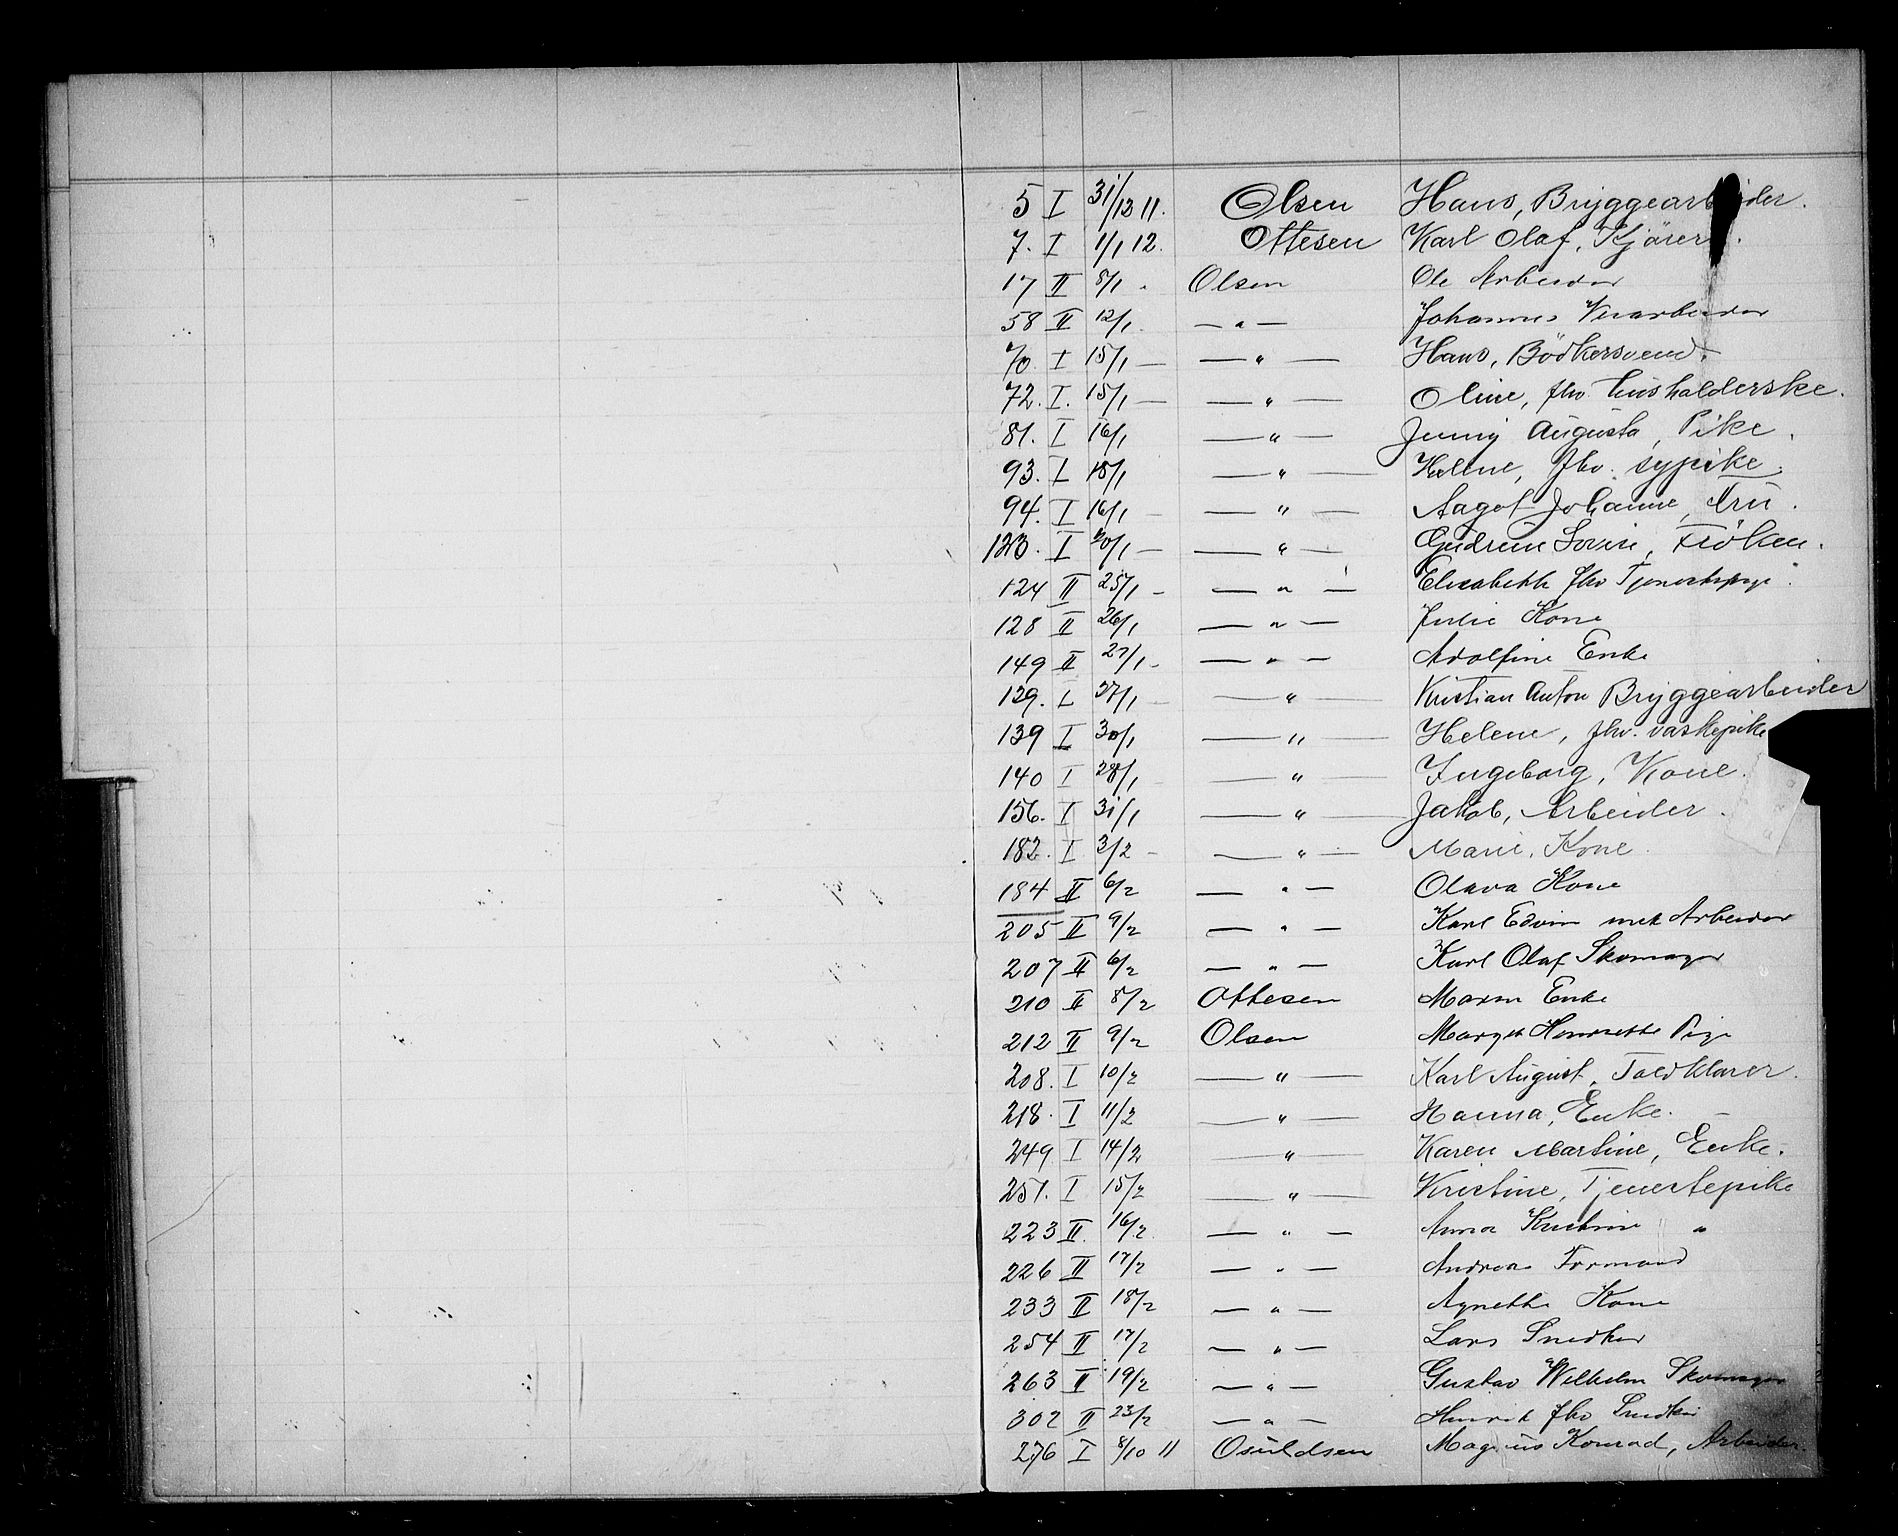 5 I 31/12 11. Olsen Hans, Bryggearbeider.
7. I 1/1 12. Ottesen Karl Olaf, Kjører.
17 II 8/1 . Olsen Ole Arbeider
58 II 12/1. — " — Johannes
70 I 15/1 — — " — Hans, Bödkersvend.
72. I. 15/1 — — " — Oline, fhv husholderske.
81. I 16/1 — " — Jenny Augusta, Pike.
93. I 18/1 — " — Helene, fhv. sypike.
94. I 16/1 — — " — Aagot Johanne, Fru.
123. I 20/1 — — " — Gudrun Lovise, Frøken.
124 II 25/1 — — " — Elisabeth fhv
128 II 26/1 — " — Julie Kone
149 II 27/1 - — " — Adolfine Enke
129. I 27/1 — — " — Kristian Anton Bryggearbeider
139 I 30/1 — " — Helene, fhv. vaskepike
140 I 28/1 — — " — Ingeborg, Kone.
156. I 31/1 — " — Jakob, Arbeider.
182. I 3/2 — — " — Marie, Kone.
184 II 6/2 — " — Olava Kone
205 II 9/2 — " — Karl Edvin Arbeider
207 II 6/2 — " — Karl Olaf Skomager
210 II 8/2 Ottesen Maren Enke
212 II 9/2 Olsen Margit Henriette Pige
208. I 10/2 — " — Karl August, Toldklarer.
218. I 11/2 — " — Hanna, Enke. —
249 I 14/2 — " — Karen Martine, Enke.
251. I 15/2 — " — Kristine, Tjenestepike
223 II. 16/2. — " — Anna Kristine "
226 II 17/2 — " — Andreas Formand
233 II 18/2 — " — Agnethe Kone
254 II 17/2 — " — Lars Snedker
263 II 19/2 — " — Gustav Wilhelm Skomager
302 II 23/2 — " — Henrik fhv Snedker
276 I 8/10 11 Osuldsen Magnus Konrad, Arbeider.